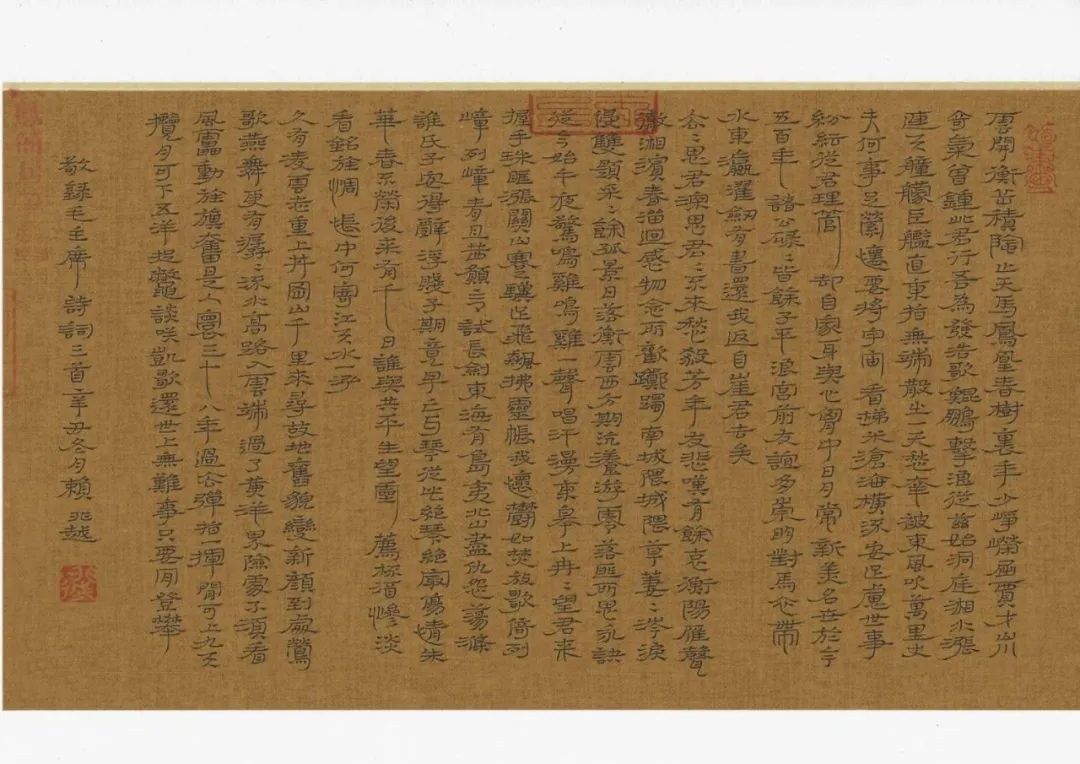 雲開衡岳積陰止天馬鳳凰春樹裏年少崢嶸屈賈才山川
奇氣曾鍾此君行吾為發浩歌鯤鵬擊浪從茲始洞庭湘水漲
連天艟艨巨艦直東指無端散出一天愁幸被東風吹萬里丈
夫何事足縈懷要將宇宙看稊米滄海橫流安足慮世事
紛紜從君理管卻自家身與心胸中日月常新美名世於今
五百年諸公碌々皆餘子平浪宮前友誼多崇明對馬衣帶
水東瀛濯劍有書還我返自崖君去矣
去々思君深思君々不來愁殺芳年友悲嘆有餘哀衡陽雁聲
徹湘濱春溜迴感物念所歡躑躅南城隈城隈草萋々涔淚
侵雙題采々餘孤景日落衡雲西方期沆瀁游零落匪所思永訣
從今始午夜驚鳴雞鳴雞一聲唱汗漫東皋上冉々望君來
握手珠眶漲關山蹇驥足飛飆拂靈帳我懷鬱如焚放歌倚列
嶂列嶂青且茜願言試長劍東海有島夷北山盡仇怨蕩滌
誰氏子安得辭浮賤子期竟早亡牙琴從此絕琴絕最傷情朱
華春不榮後來有千日誰與共平生望靈薦杯酒慘淡
看銘旌惆悵中何寄江天水一泓
久有凌雲志重上井岡山千里來尋故地舊貌變新顏到處鶯
歌燕舞更有潺々流水高路入雲端過了黃洋界險處不須看
風雷動旌旗奮是人寰三十八年過去彈指一揮間可上九天
攬月可下五洋捉鱉談笑凱歌還世上無難事只要肯登攀
敬錄毛主席詩詞三首辛丑冬月賴兆越